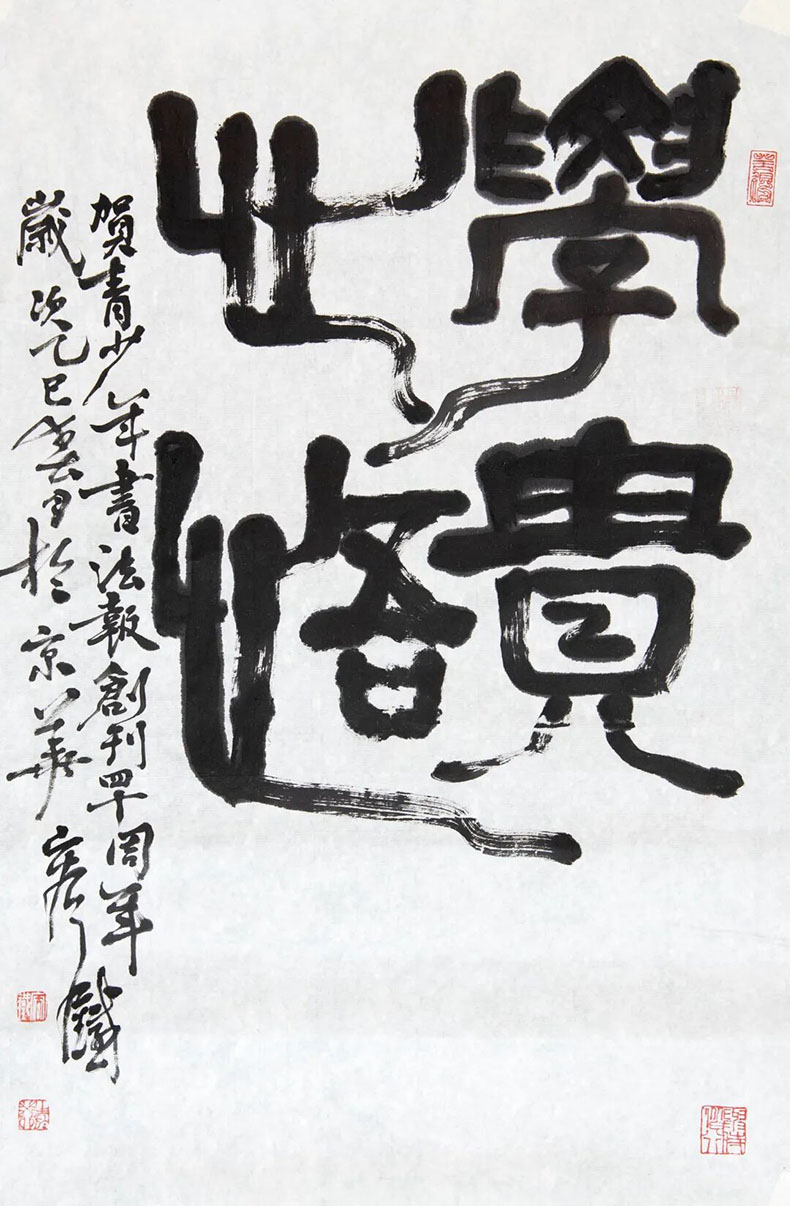 學貴
心悟
賀青少年書法報創刊四十周年
歲次乙巳春月於京華